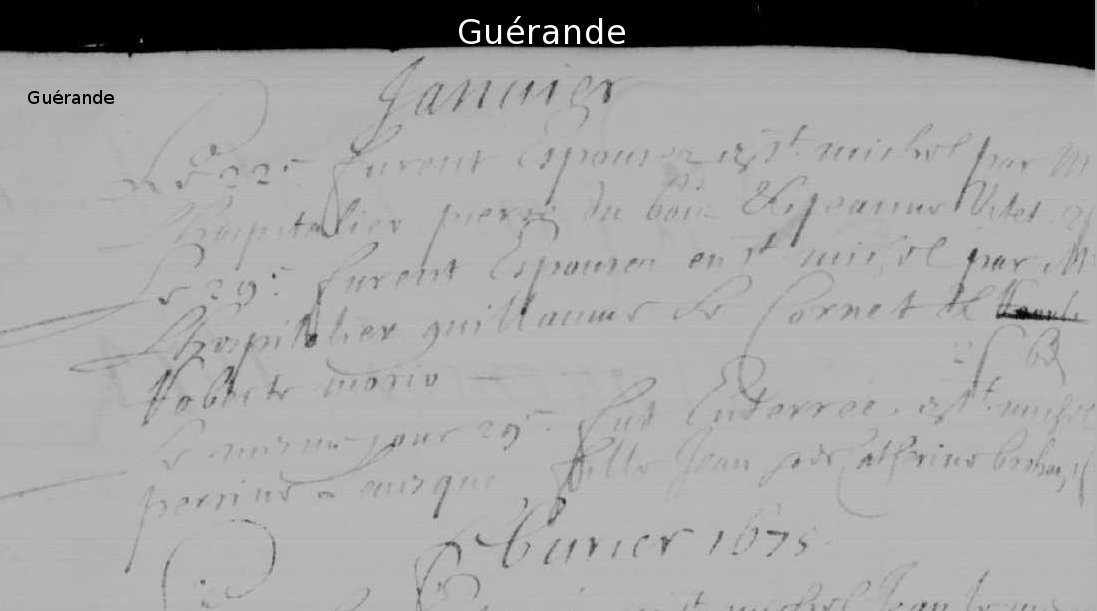 Guérande
Guérande
Januier
Le 22e furent Espousez à st michel par M
Lhospitalier pierre du bois & Jeanne Vitet
Le 29e furent Espousez en st michel par M
Lhospitalier guillaume Le Cornet &
Roberte morio
Le mesme jour 29e fut Enterrée à st michel
perrine fille Jean & de Catherine
feburier 1675
st michel Jean